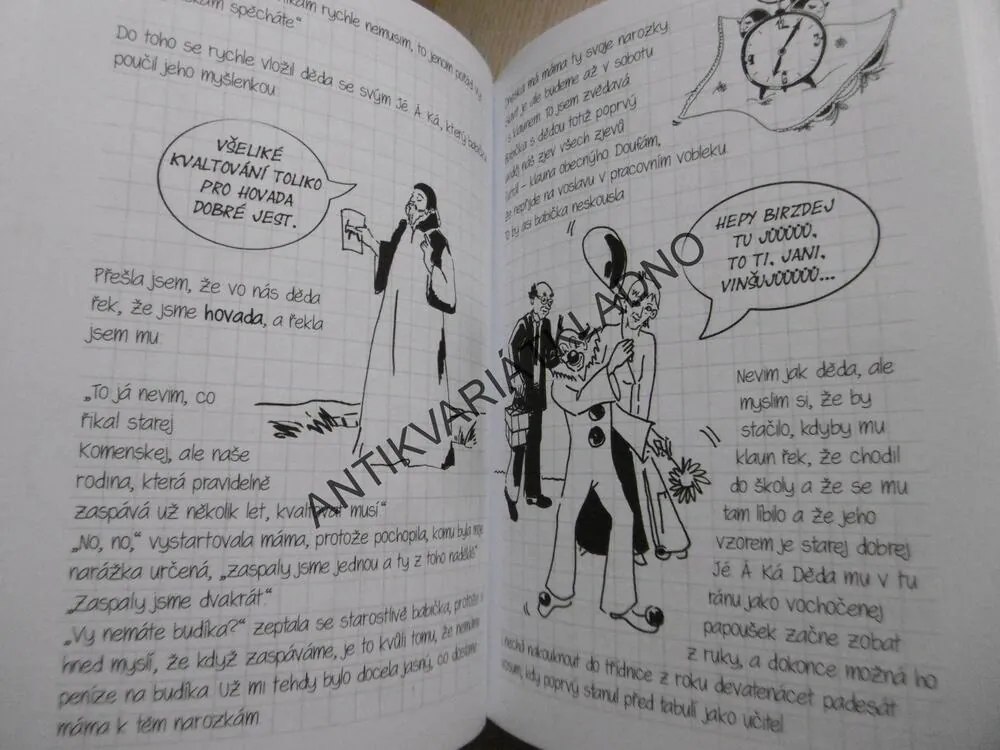 rychle nemusím, to jenom pořád vy
spěcháte"
Do toho se rychle vložil děda se svým Jé Á Ká, který babičku
poučil jeho myšlenkou
VŠELIKÉ
KVALTOVÁNÍ TOLIKO
PRO HOVADA
DOBRÉ JEST.
Přešla jsem, že vo nás děda
řek, že jsme hovada, a řekla
jsem mu
„To já nevim, co
říkal starej
Komenskej, ale naše
rodina, která pravidelně
zaspává už několik let, kvaltovat musí"
„No, no," vystartovala máma, protože pochopila, komu byla moje
narážka určená, „zaspaly jsme jednou a ty z toho naděláš"
„Zaspaly jsme dvakrát."
„Vy nemáte budíka?" zeptala se starostlivě babička, protože si
hned myslí, že když zaspáváme, je to kvůli tomu, že nemáme
peníze na budíka Už mi tehdy bylo docela jasný, co dostane
máma k těm narozkám
má máma ty svoje narozky,
je ale budeme až v sobotu
s klaunem. To jsem zvědavá
Babička s dědou totiž poprvý
náš zjev všech zjevů
– klauna obecnýho Doufám,
že nepřijde na voslavu v pracovním vobleku
to by asi babička neskousla
HEPY BIRZDEJ
TU JÚÚÚÚÚ,
TO TI, JANI,
VINŠUJÚÚÚÚÚ...
Nevim jak děda, ale
myslim si, že by
stačilo, kdyby mu
klaun řek, že chodil
do školy a že se mu
tam líbilo a že jeho
vzorem je starej dobrej
Jé Á Ká Děda mu v tu
ránu jako vochočenej
papoušek začne zobat
z ruky, a dokonce možná ho
nechá nakouknout do třídnice z roku devatenácet padesát
kdy poprvý stanul před tabulí jako učitel
ANTIKVARIÁT KLADNO